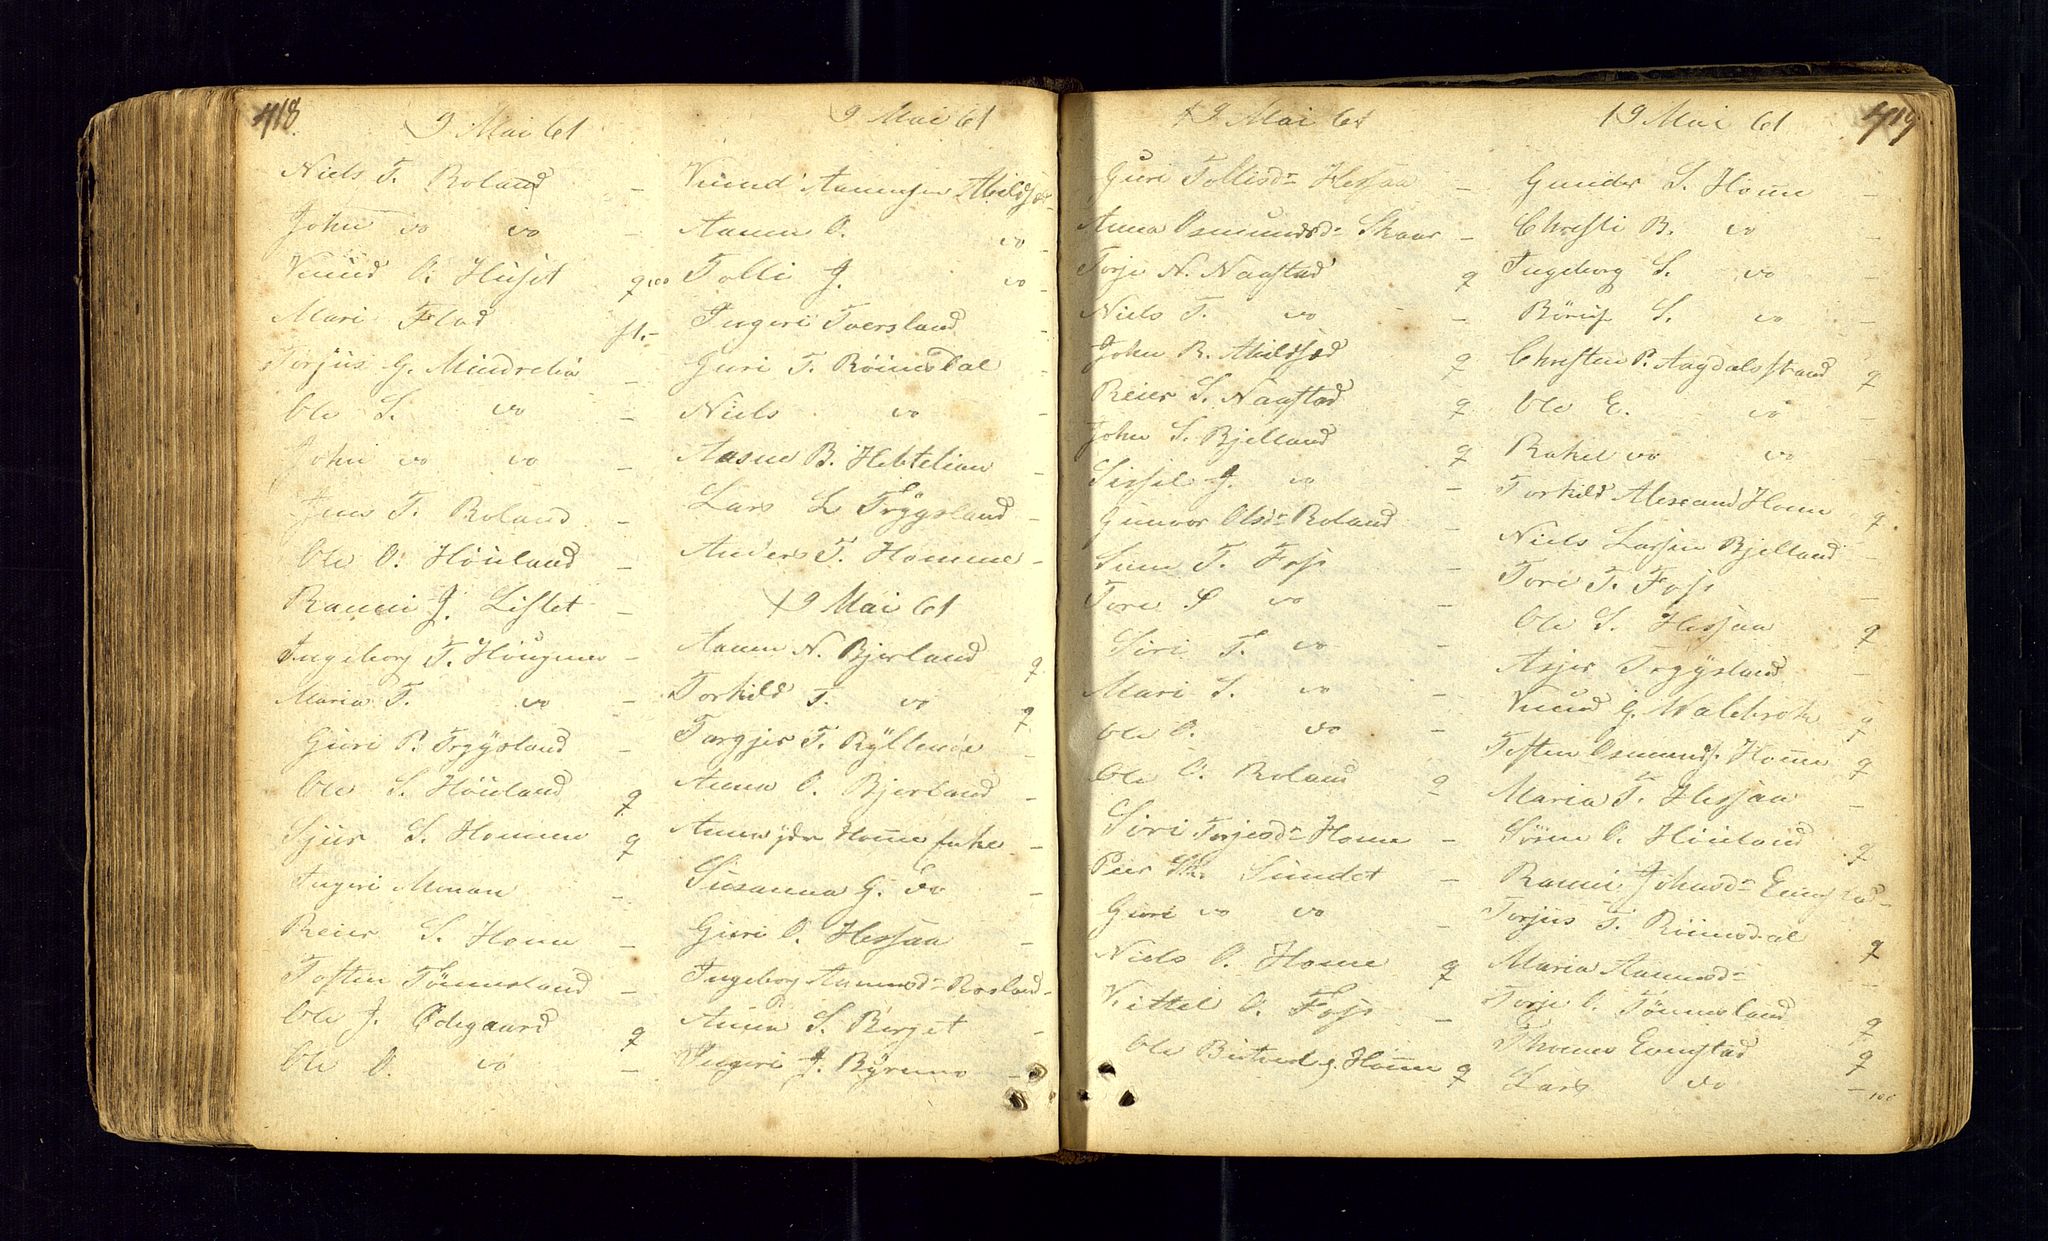 418
9 Mai 61
Niels T. Roland -
John do do -
Knud O. Huset g 100
Mari Flad fl.-
Torjus G. Mindrelia -
Ole S. do -
John do do -
Jens T. Roland -
Ole O. Höiland -
Ranni J. Lislet -
Ingeborg T. Hougmo -
Maria T. do -
Guri P. Trygsland -
Ole S. Höiland g
Sjur S. Homme g
Ingeri Monan -
Reier S. Home -
Tosten Tönnesland -
Ole J. Ødegaard g
Ole O. do -
9 Mai 61
Knud Aanensen Abildsæt -
Aanen O. do -
Tolli J. do -
Ingeri Toersland -
Guri T. Röinsdal -
Niels do -
Aasne B. Hebtelian -
Lars L. Trygsland -
Anders T. Homme -
19 Mai 61
Aanen N. Bjerland g
Torkild T. do g
Torgjer T. Ryllenæs -
Anna O. Bjerland -
Anna Home Enke -
Susanna G. do -
Guri O. Hessaa -
Ingeborg Aanensdr Rosland -
Anna S. Berget -
Ingeri J. Byremo -
19 Mai 61
Guri Tollisdr Hessaa -
Anna Osmundsdr Skaar -
Torje N. Naastad g
Niels T. do -
John R. Abildsæd g
Reier S. Naastad g
John S. Bjelland g
Sissel J. do -
Gunvor Olsdr Roland -
Sune T. Foss -
Tore S do -
Siri T. do -
Mari S. do -
Ole O. do -
Ole O. Roland g
Siri Torjesdr Home -
Peer Sundet -
Guri do do -
Niels O. Home g
Kittel O. Foss -
Ole Home g
419
19 Mai 61
Gunder S. Home -
Christi B. do -
Ingeborg S. do -
Böruf S. do -
Christen P. Aagdalsstrand g
Ole E. do -
Rakel do do -
Torkild Alexand Home g
Niels Larsen Bjelland -
Tore T. Foss -
Ole S. Hessaa g
Asjer Trygsland -
Knud G. Valebrok g
Tosten Osmunds. Home g
Maria T. Hessaa -
Sören O. Höiland g
Ranni Johnsdr Eungstad -
Torjus T. Röinsdal g
Maria Aanensdr -
Torje O. Tönnesland g
Thomas Evenstad g
Lars do - 100